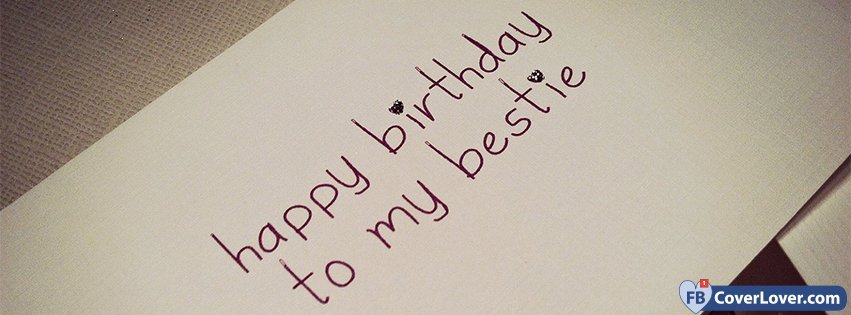 happy birthday
to my bestie
FB CoverLover.com
1